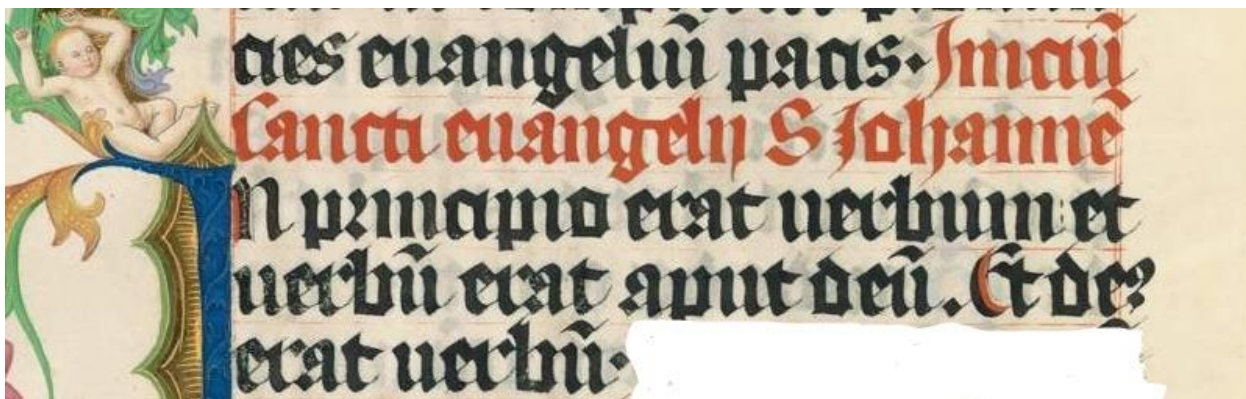 cies euangeliū pacis. Iniciū
Sancti euangelij S Johannē
IN principio erat uerbum: et
uerbū erat aput deū. Et deꝰ
erat uerbū.